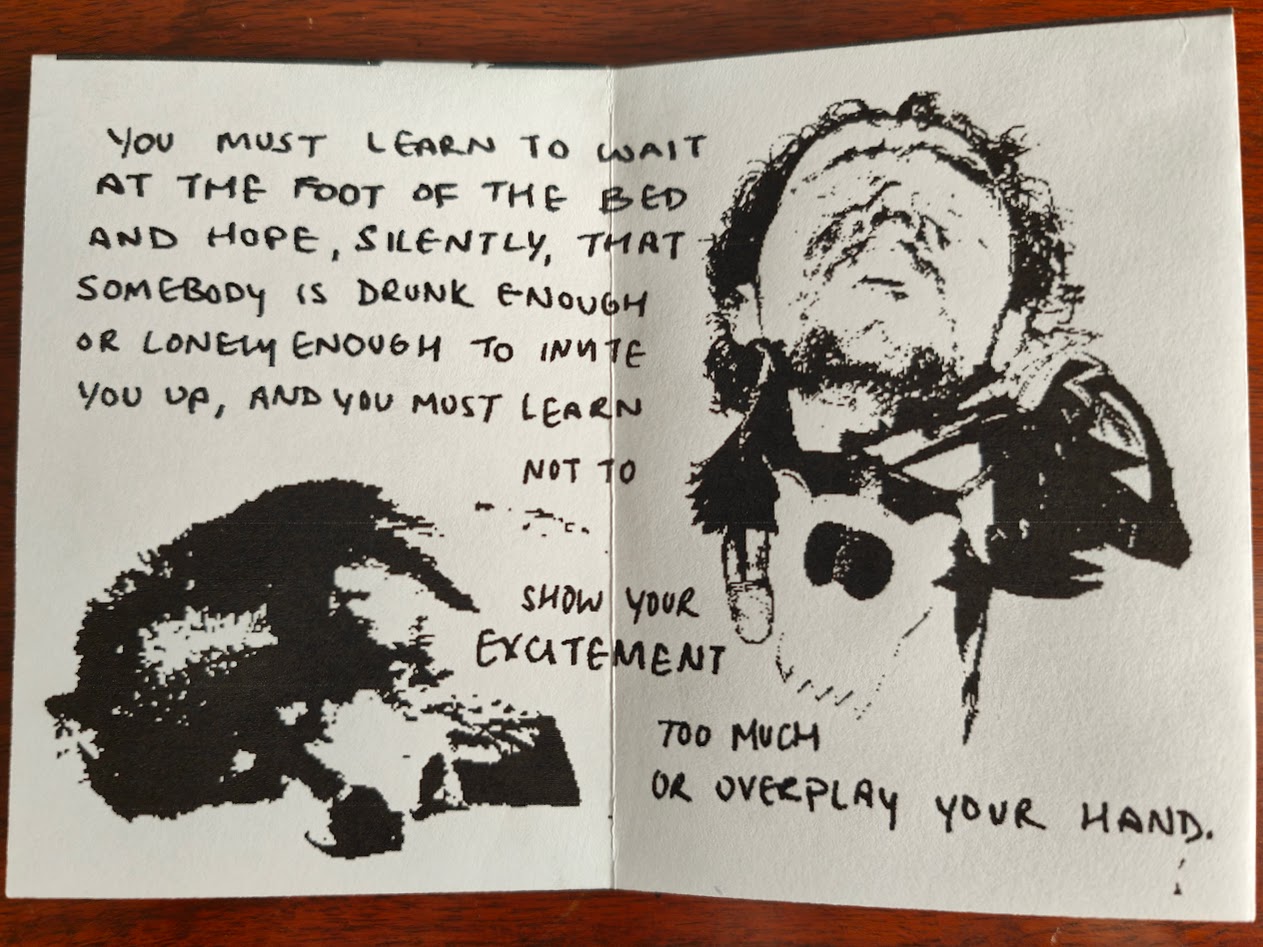 YOU MUST LEARN TO WAIT
AT THE FOOT OF THE BED
AND HOPE, SILENTLY, THAT
SOMEBODY IS DRUNK ENOUGH
OR LONELY ENOUGH TO INVITE
YOU UP, AND YOU MUST LEARN
NOT TO
SHOW YOUR
EXCITEMENT
TOO MUCH
OR OVERPLAY YOUR HAND.